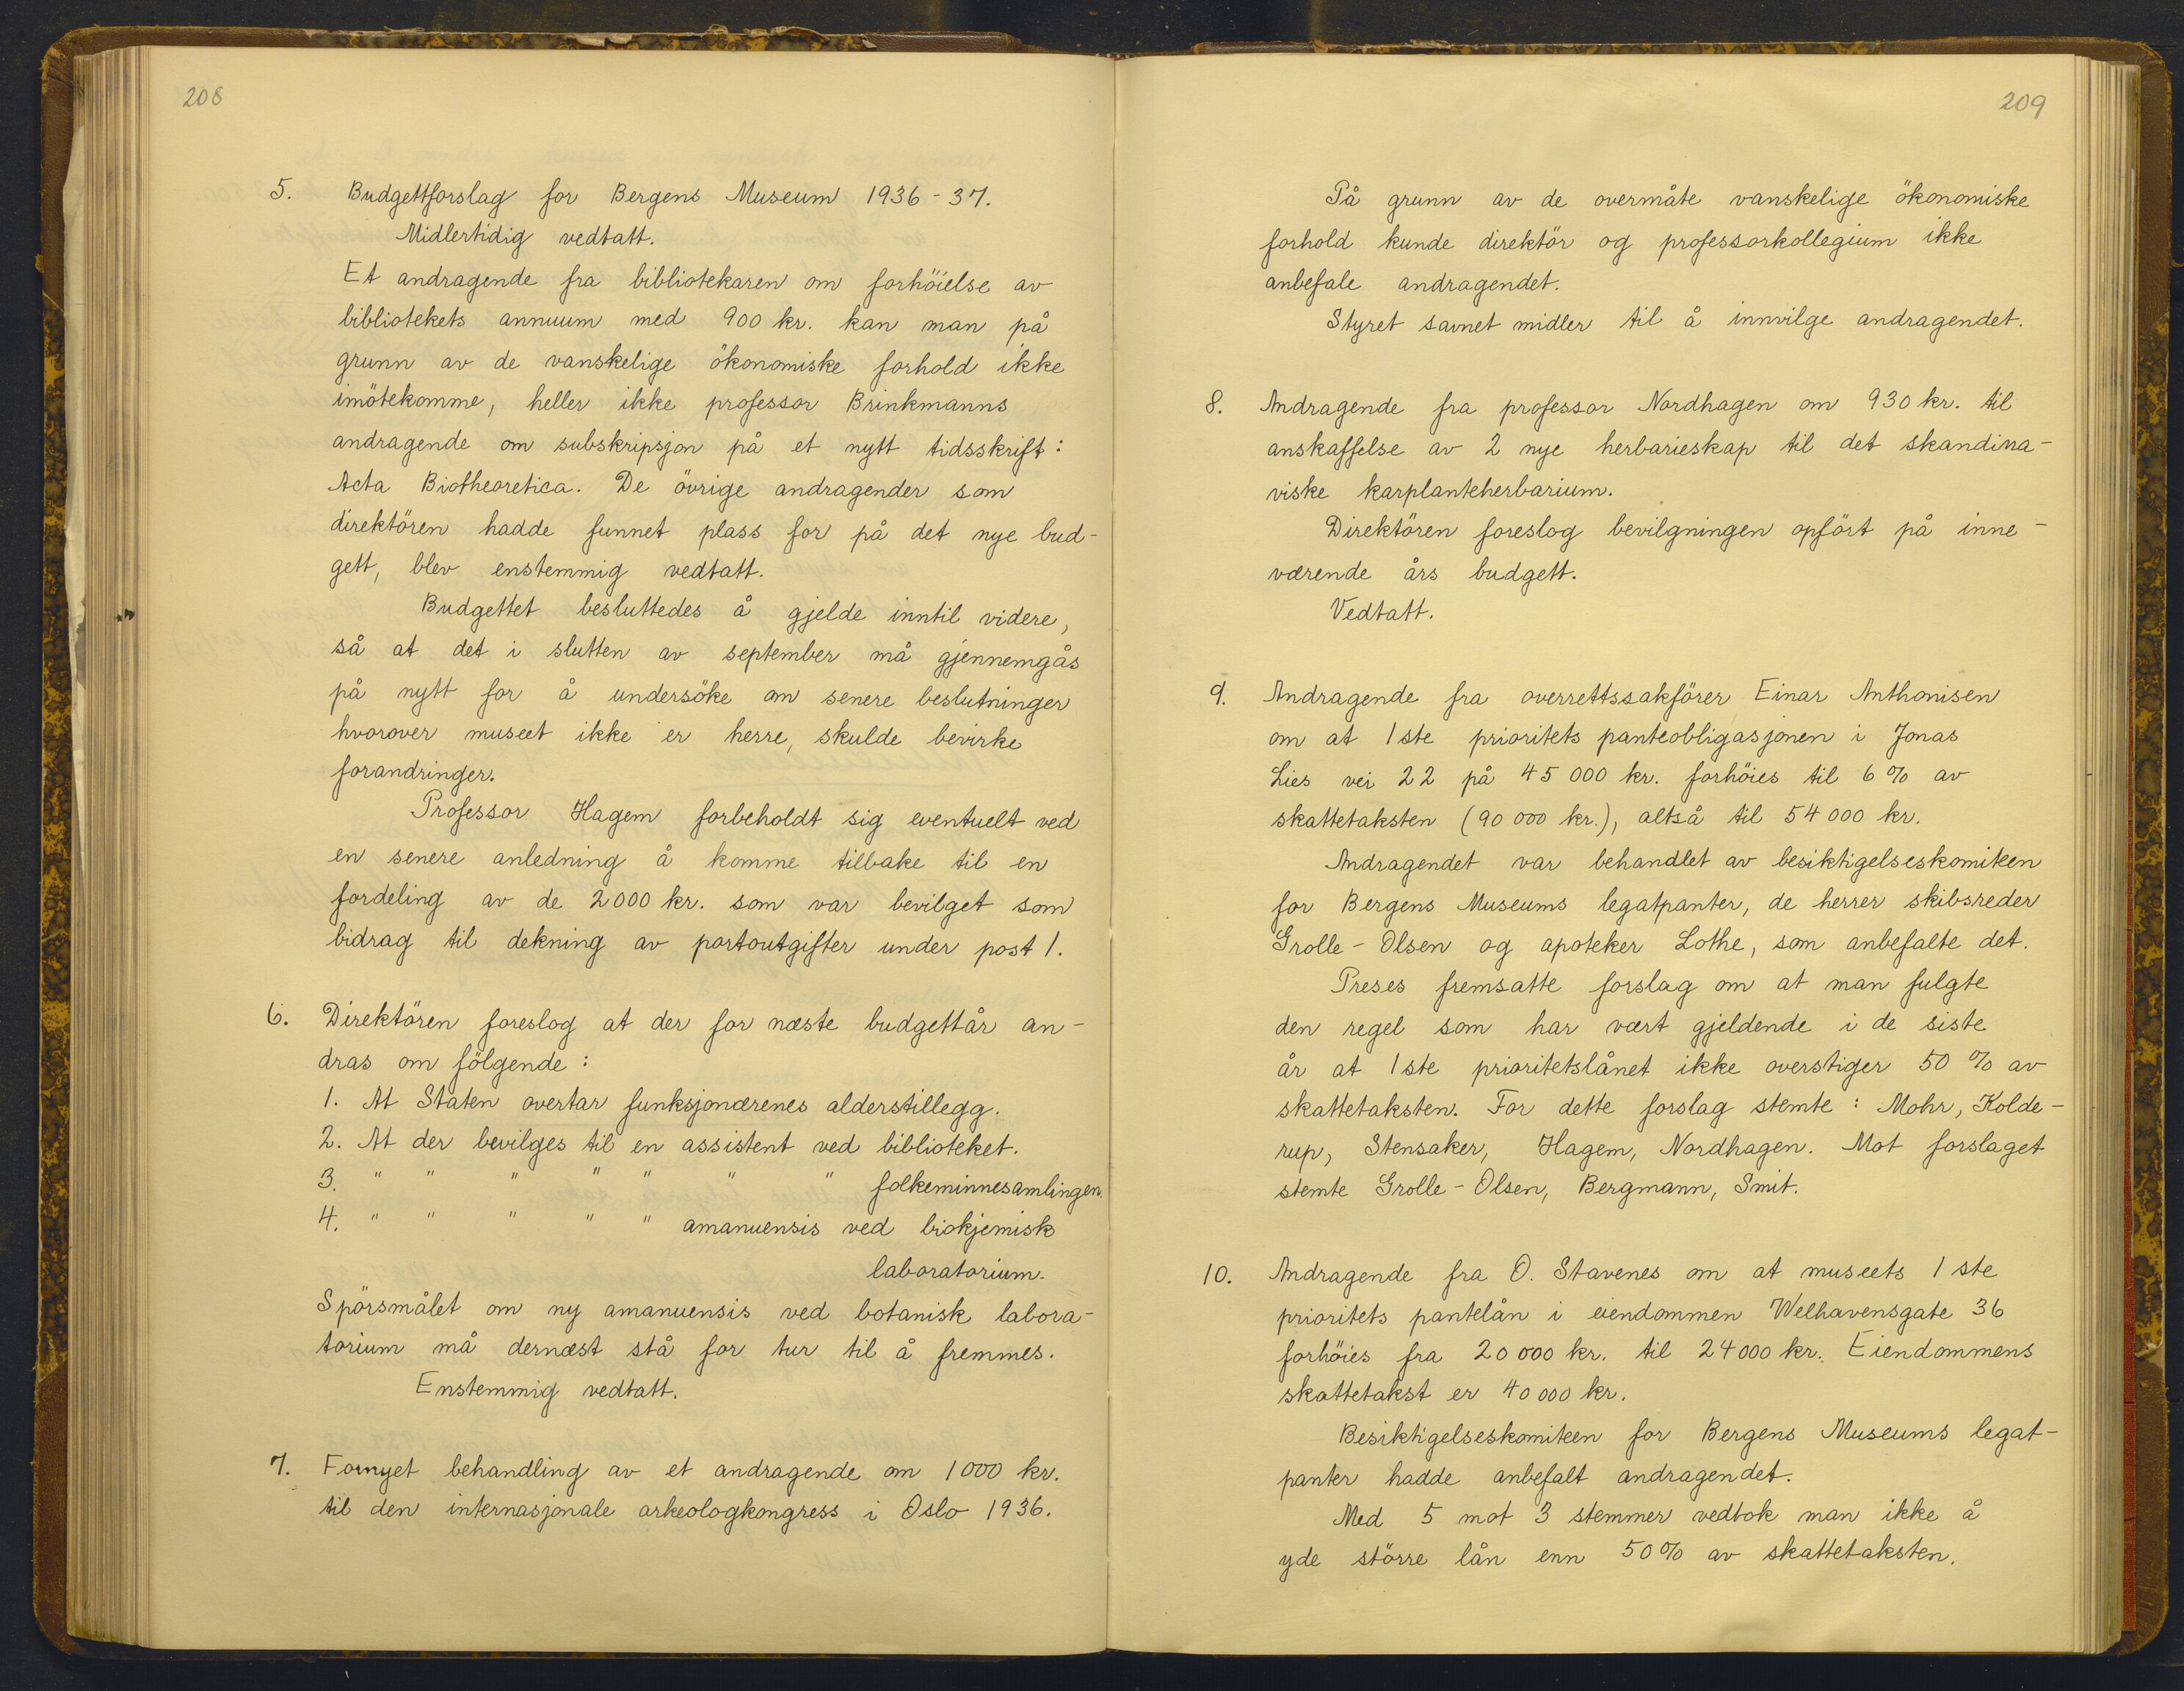 208
5. Budgettforslag for Bergens Museum 1936-37.
Midlertidig vedtatt.
Et andragende fra bibliotekaren om forhöielse av
bibliotekets annuum med 900 kr. kan man på
grunn av de vanskelige ökonomiske forhold ikke
imötekomme, heller ikke professor Brinkmanns
andragende om subskripsjon på et nytt tidsskrift:
Acta Biotheoretica. De övrige andragender som
direktören hadde funnet plass for på det nye bud-
gett, blev enstemmig vedtatt.
Budgettet besluttedes å gjelde inntil videre,
så at det i slutten av september må gjennemgås
på nytt for å undersöke om senere beslutninger
hvorover museet ikke er herre, skulde bevirke
forandringer.
Professor Hagem forbeholdt sig eventuelt ved
en senere anledning å komme tilbake til en
fordeling av de 2000 kr. som var bevilget som
bidrag til dekning av portoutgifter under post 1.
6. Direktören foreslog at der for næste budgettår an-
dras om fölgende:
1. At Staten overtar funksjonærenes alderstillegg.
2. At der bevilges til en assistent ved biblioteket.
3. " " " " " " " folkeminnesamlingen.
4. " " " " " amanuensis ved biokjemisk
laboratorium.
Spörsmålet om ny amanuensis ved botanisk labora-
torium må dernæst stå for tur til å fremmes.
Enstemmig vedtatt.
7. Fornyet behandling av et andragende om 1000 kr.
til den internasjonale arkeologkongress i Oslo 1936.
209
På grunn av de overmåte vanskelige ökonomiske
forhold kunde direktör og professorkollegium ikke
anbefale andragendet.
Styret savnet midler til å innvilge andragendet.
8. Andragende fra professor Nordhagen om 930 kr. til
anskaffelse av 2 nye herbarieskap til det skandina-
viske karplanteherbarium.
Direktören foreslog bevilgningen opfört på inne-
værende års budgett.
Vedtatt.
9. Andragende fra overrettssakförer Einar Anthonisen
om at 1ste prioritets panteobligasjonen i Jonas
Lies vei 22 på 45 000 kr. forhöies til 6 % av
skattetaksten (90 000 kr.), altså til 54 000 kr.
Andragendet var behandlet av besiktigelseskomiteen
for Bergens Museums legatpanter, de herrer skibsreder
Grolle-Olsen og apoteker Lothe, som anbefalte det.
Preses fremsatte forslag om at man fulgte
den regel som har vært gjeldende i de siste
år at 1ste prioritetslånet ikke overstiger 50 % av
skattetaksten. For dette forslag stemte: Mohr, Kolde-
rup, Stensaker, Hagem, Nordhagen. Mot forslaget
stemte Grolle-Olsen, Bergmann, Smit.
10. Andragende fra O. Stavenes om at museets 1ste
prioritets pantelån i eiendommen Welhavensgate 36
forhöies fra 20 000 kr. til 24 000 kr. Eiendommens
skattetakst er 40 000 kr.
Besiktigelseskomiteen for Bergens Museums legat-
panter hadde anbefalt andragendet.
Med 5 mot 3 stemmer vedtok man ikke å
yde större lån enn 50% av skattetaksten.